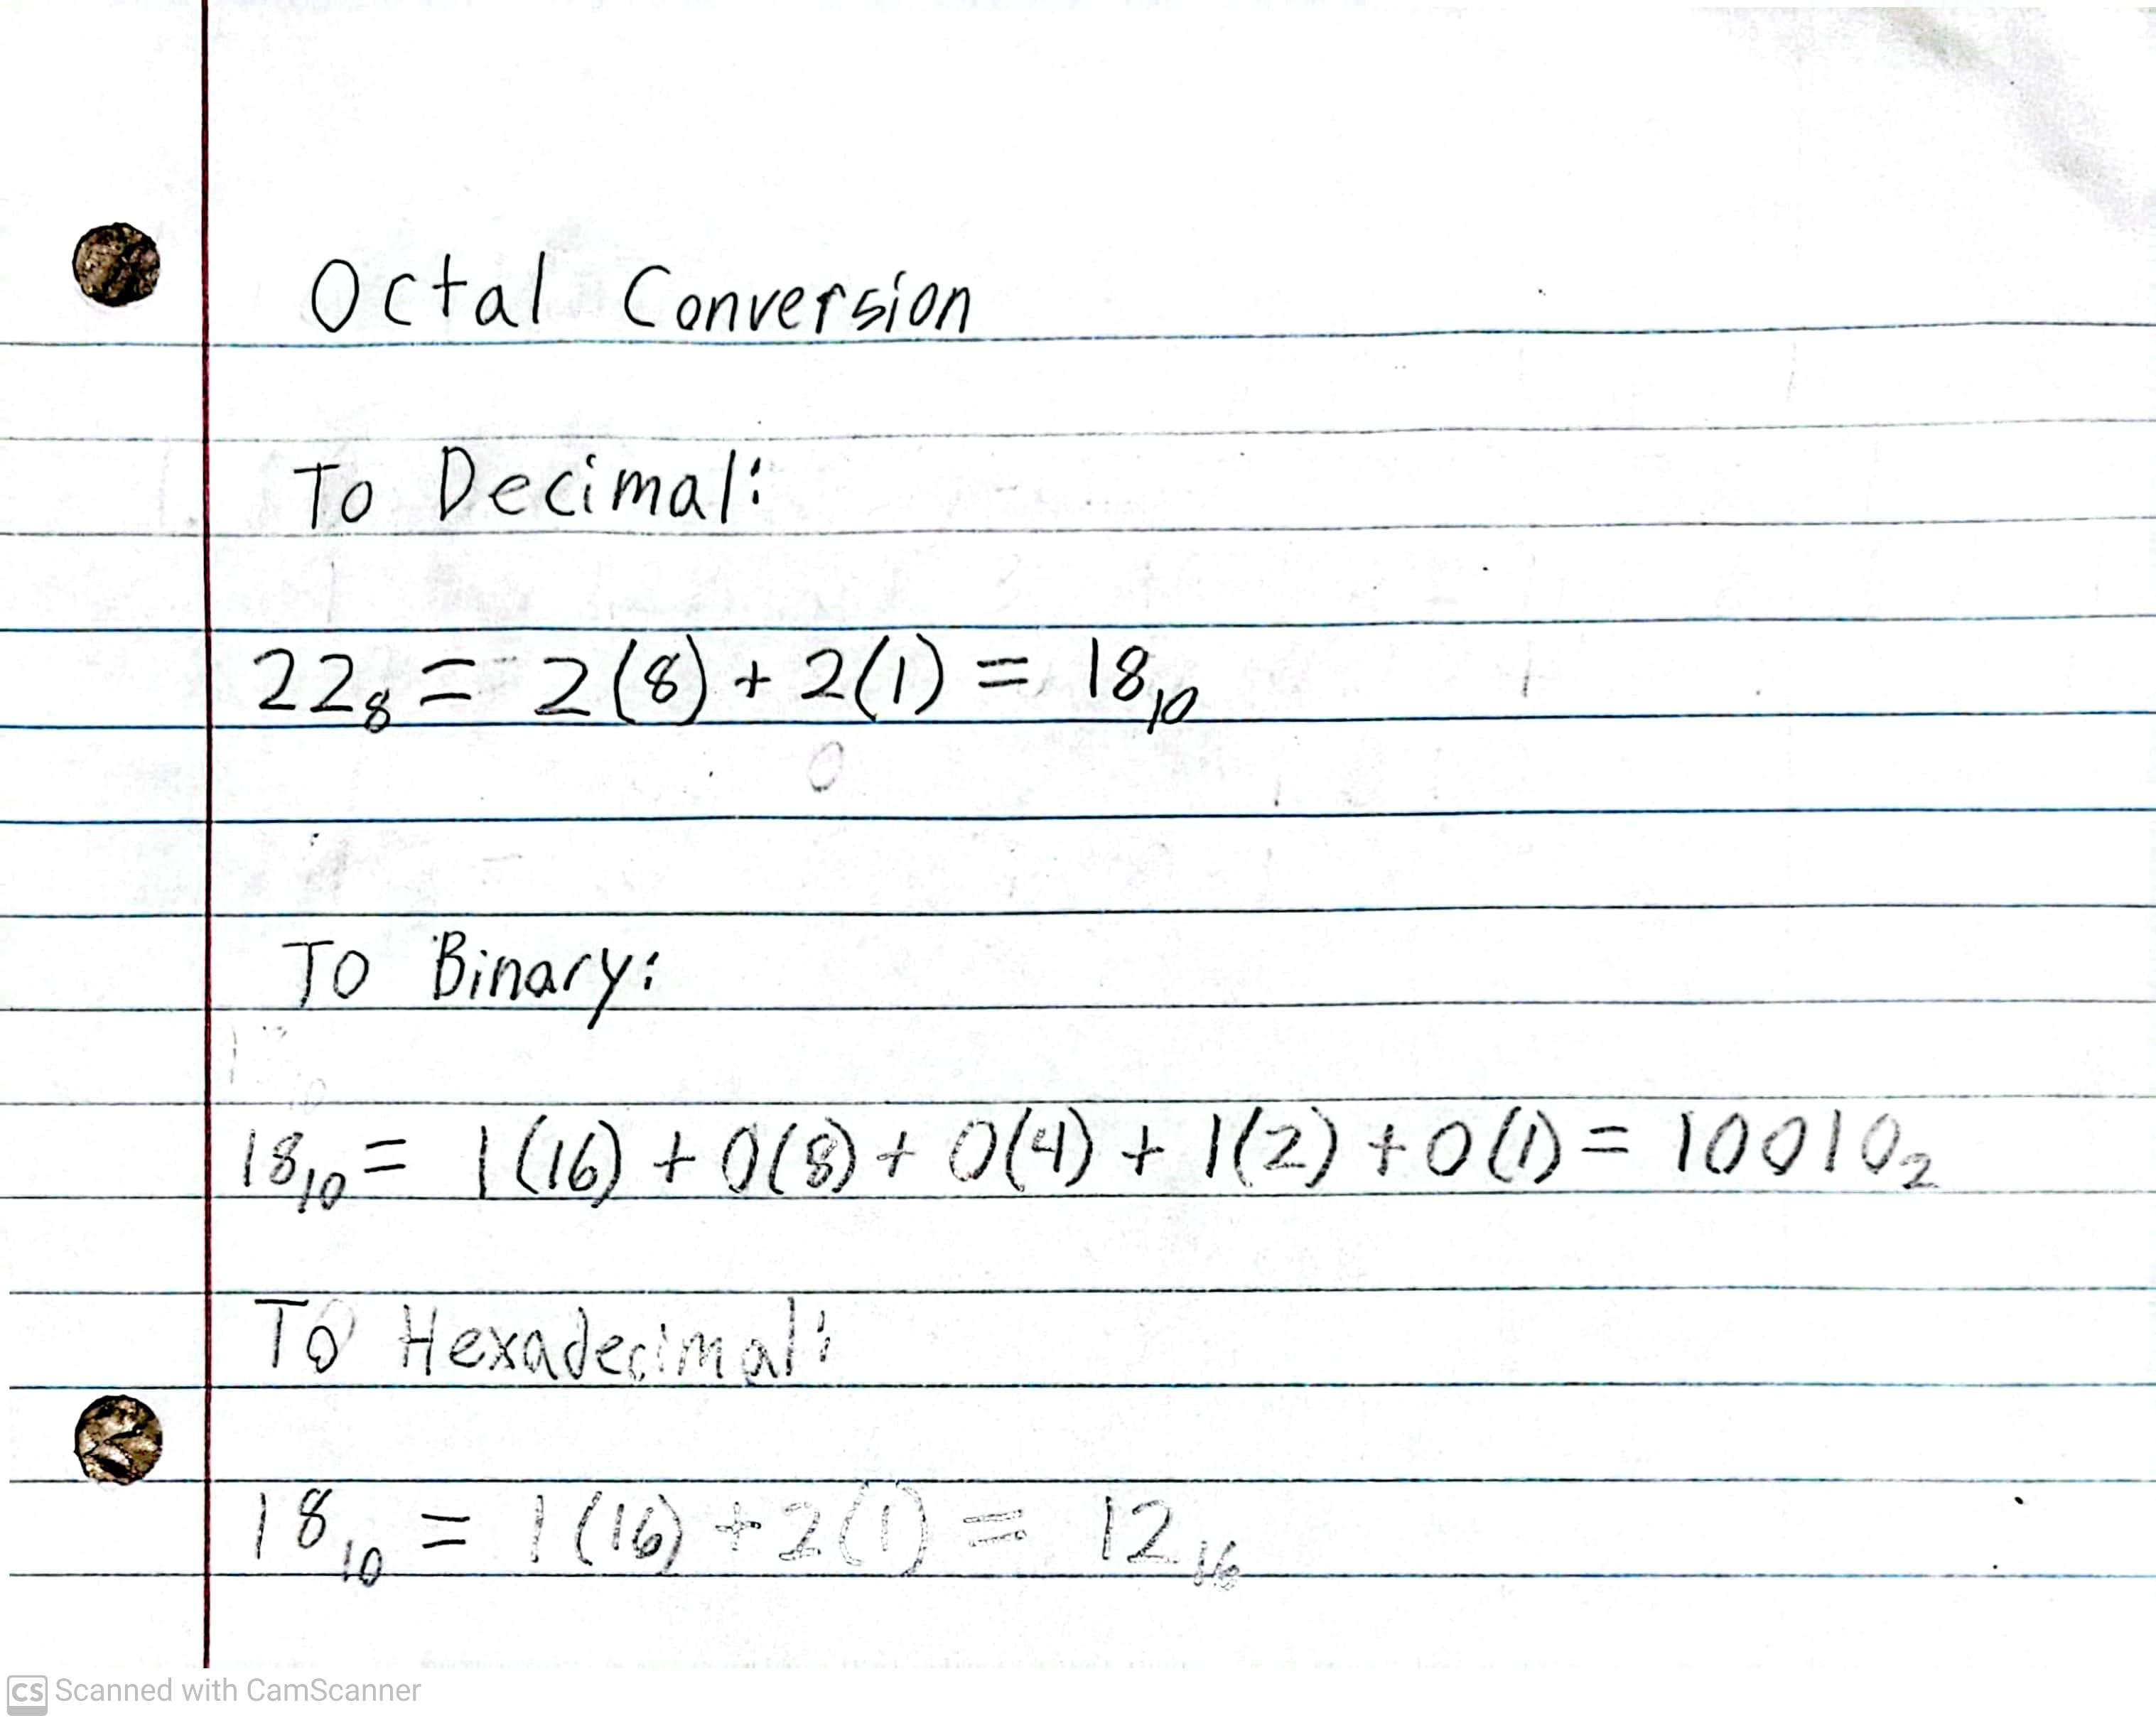 Octal Conversion
To Decimal:
22₈ = 2(8) + 2(1) = 18₁₀
To Binary:
18₁₀ = 1(16) + 0(8) + 0(4) + 1(2) + 0(1) = 10010₂
To Hexadecimal:
18₁₀ = 1(16) + 2(1) = 12₁₆
CS Scanned with CamScanner